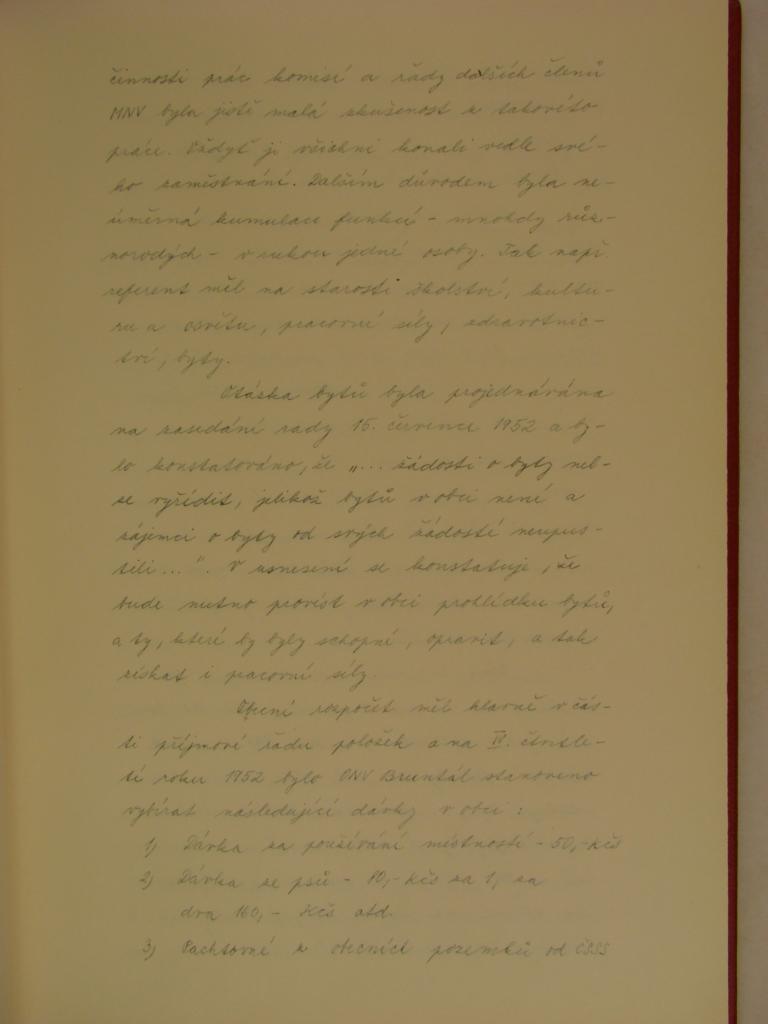 činnosti prác komisí a řady dalších členů
MNV byla jistě malá zkušenost z takovéto
práce. Vždyť ji všichni konali vedle své-
ho zaměstnání. Dalším důvodem byla ne-
úměrná kumulace funkcí - mnohdy růz-
norodých - v rukou jedné osoby. Tak např.
referent měl na starosti školství, kultu-
ru a osvětu, pracovní síly, zdravotnic-
tví, byty.
Otázka bytů byla projednávána
na zasedání rady 15. července 1952 a by-
lo konstatováno, že „... žádosti o byty nel-
ze vyřídit, jelikož bytů v obci není a
zájemci o byty od svých žádostí neupus-
tili...". V usnesení se konstatuje, že
bude nutno provést v obci prohlídku bytů,
a ty, které by byly schopné, opravit, a tak
získat i pracovní síly.
Obecní rozpočet měl hlavně v čás-
ti příjmové řadu položek a na IV. čtvrtle-
tí roku 1952 bylo ONV Bruntál stanoveno
vybírat následující dávky v obci:
1) Dávka za používání místností - 50,- Kčs
2) Dávka ze psů - 80,- Kčs za 1, za
dva 160,- Kčs atd.
3) Pachtovné z obecních pozemků od ČSSS